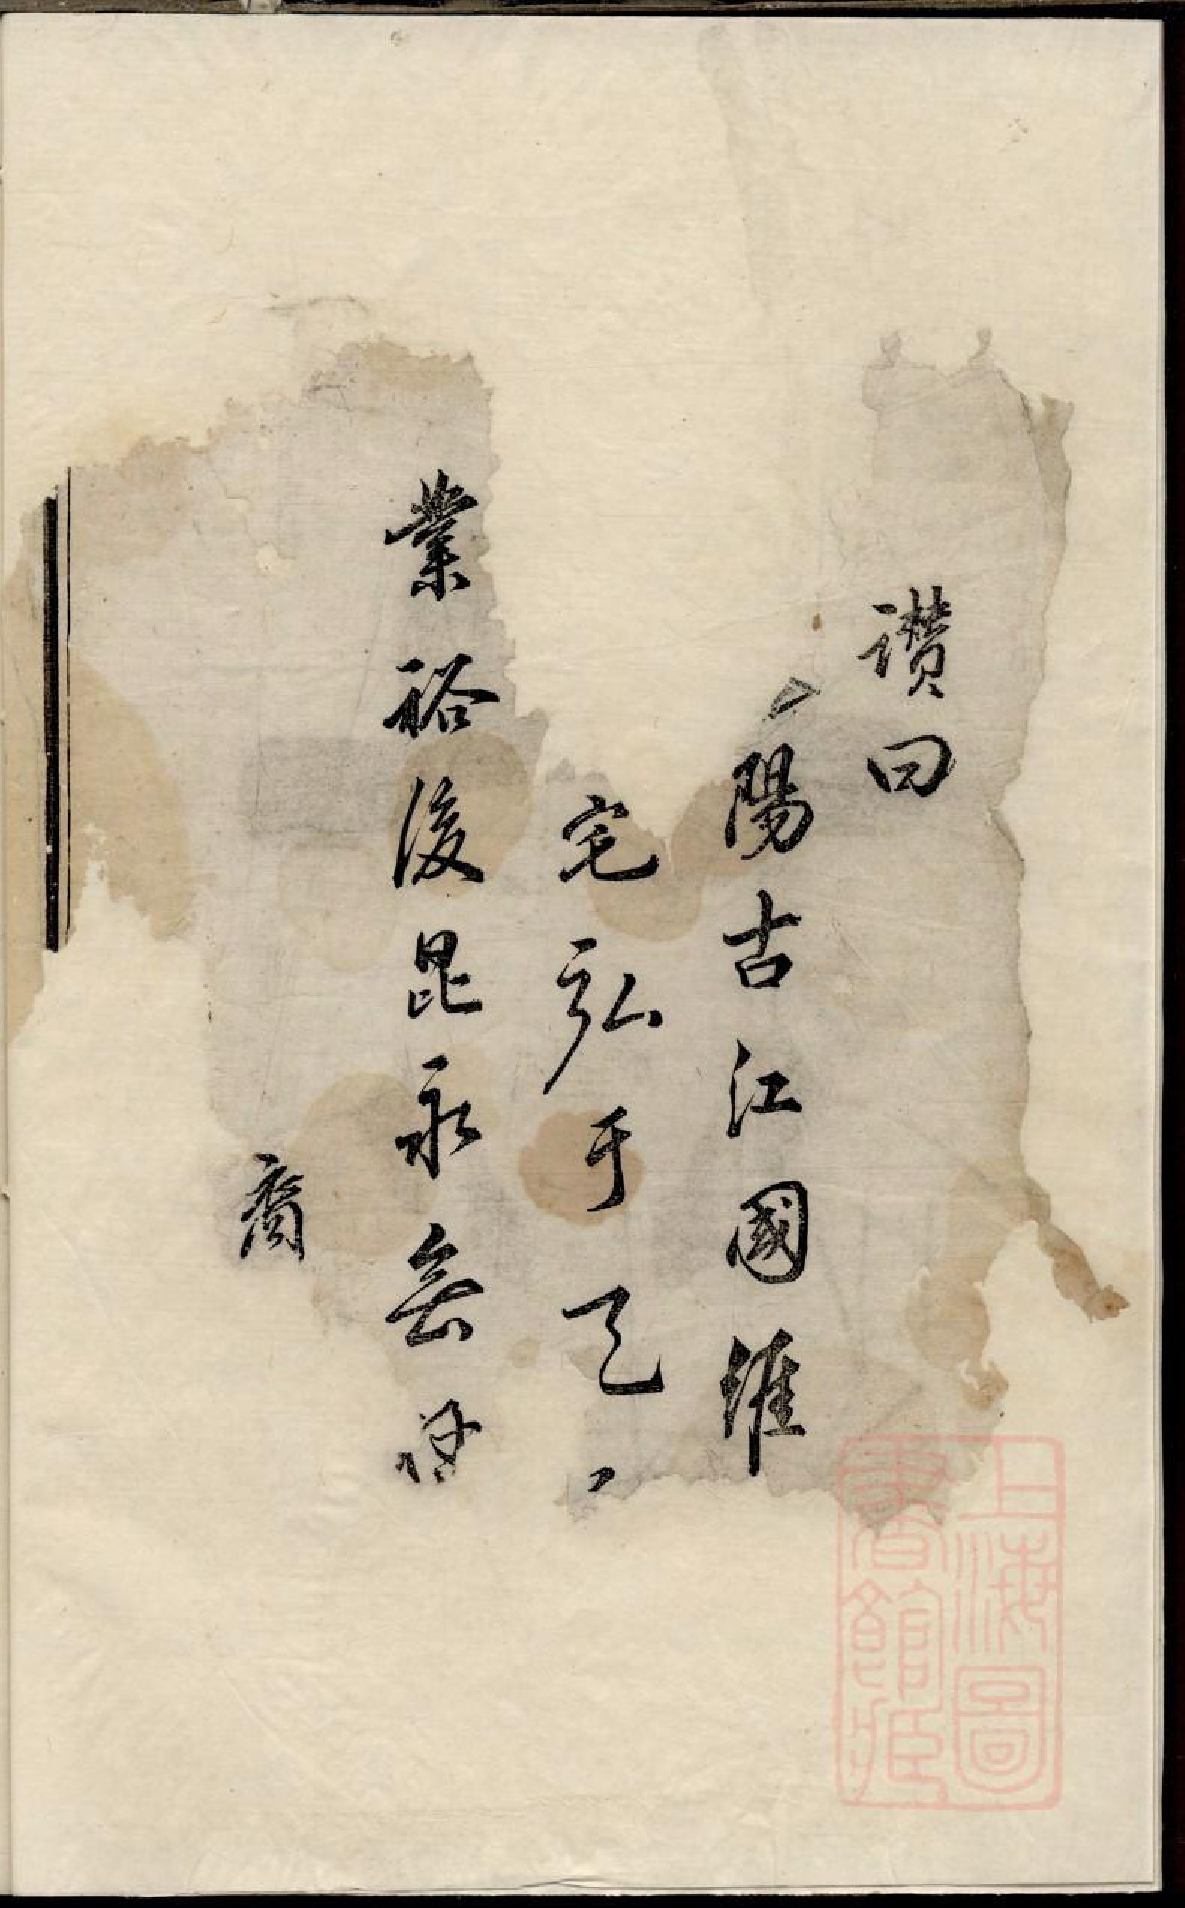 讃曰
陽古江國維
宅弘于
業裕後昆永無
裔
上海圖
書館藏